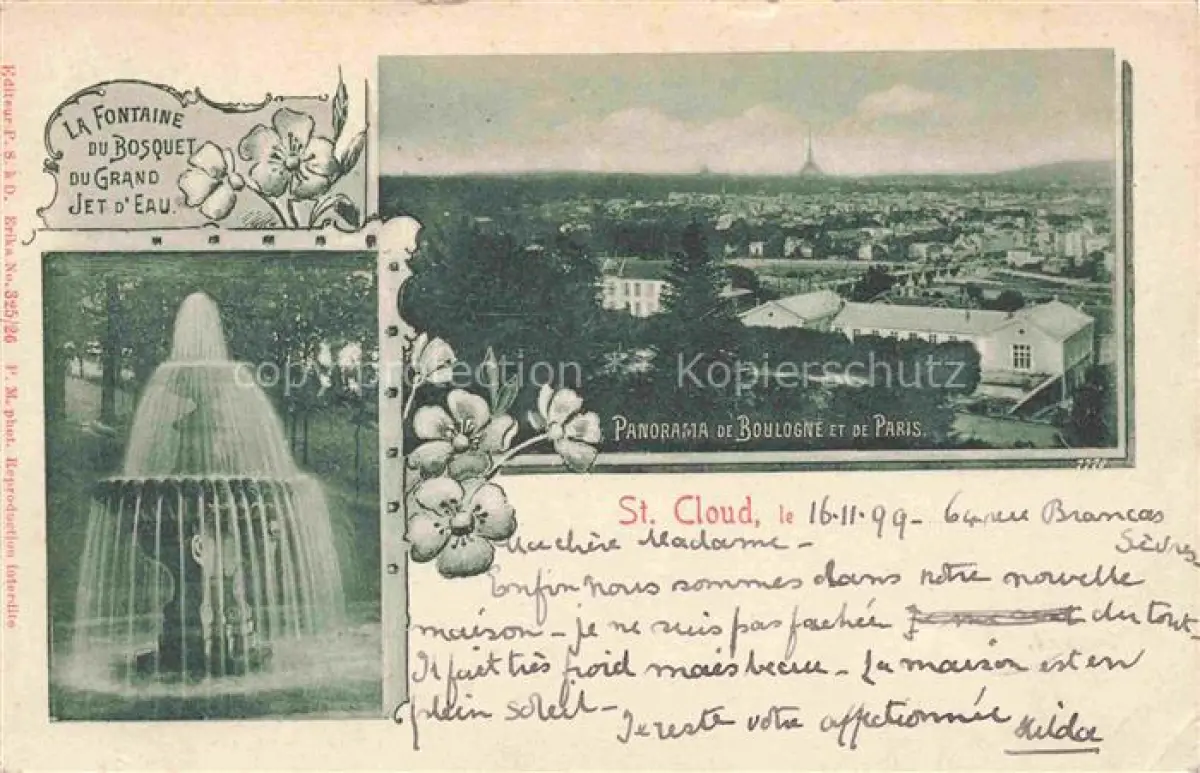 LA FONTAINE
DU BOSQUET
DU GRAND
JET D'EAU.
PANORAMA DE BOULOGNE ET DE PARIS.
copyright protection - Kopierschutz
St. Cloud, le 16.11.99 - 64 rue Brancas
Sèvres
Ma chère Madame -
Enfin nous sommes dans notre nouvelle
maison - je ne suis pas fachée du tout -
Il fait très froid mais beau - La maison est en
plein soleil -
Je reste votre affectionnée Hilda
Editeur P. S. à D. Erika No. 325/26 F. M. phot. Reproduction interdite